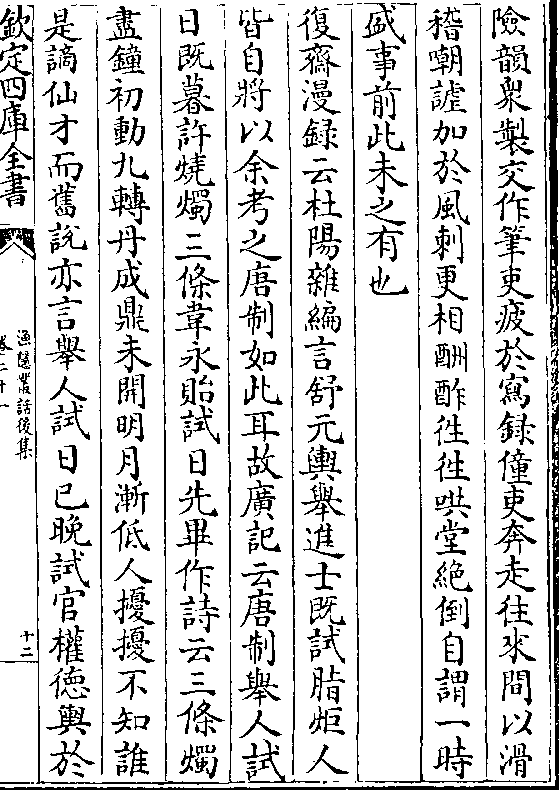 險韻衆製交作筆吏疲於寫錄僮吏奔走往來間以滑
稽嘲謔加於風刺更相酬酢徃徃哄堂絶倒自謂一時
盛事前此未之有也
復齋漫録云杜陽雜編言舒元輿舉進士既試脂炬人
皆自將以余考之唐制如此耳故廣記云唐制舉人試
日既暮許燒燭三條韋永貽試日先畢作詩云三條燭
盡鐘初動九轉丹成鼎未開明月漸低人擾擾不知誰
是謫仙才而舊説亦言舉人試日已晚試官權徳輿於
欽定四庫全書
漁隱叢話後集
卷二十一
十二